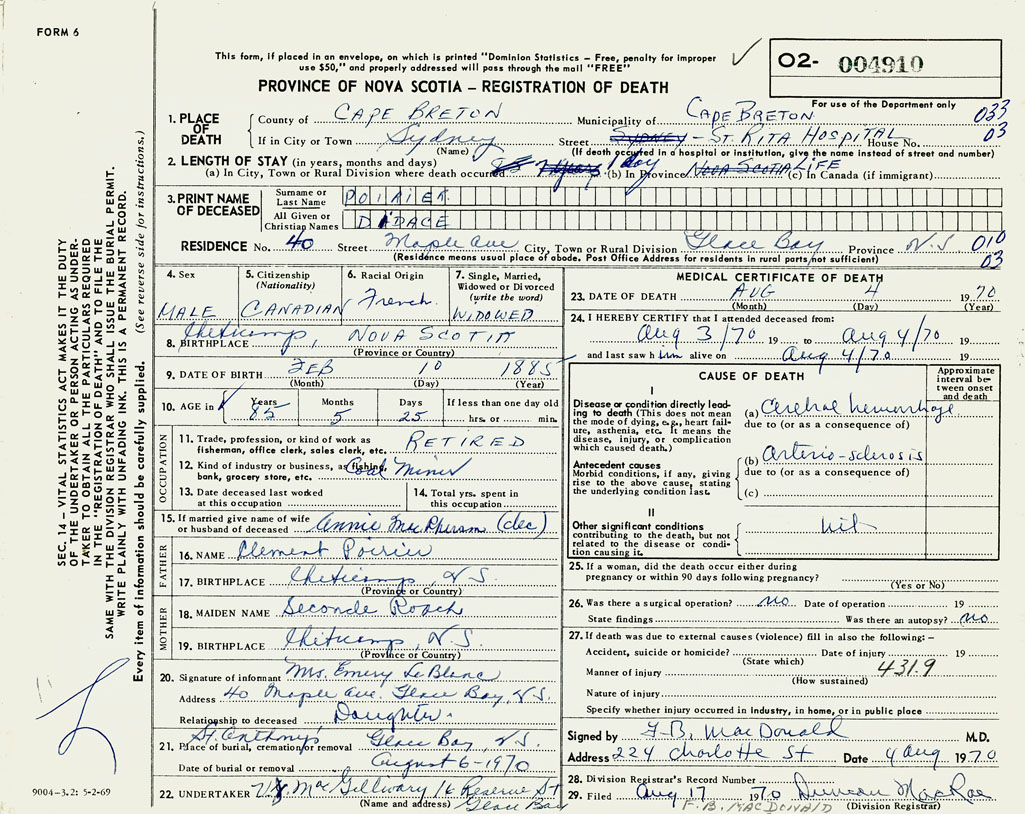 FORM 6
This form, if placed in an envelope, on which is printed "Dominion Statistics – Free, penalty for improper
use $50," and properly addressed will pass through the mail "FREE"
O2- 004910
For use of the Department only
PROVINCE OF NOVA SCOTIA – REGISTRATION OF DEATH
1. PLACE OF DEATH
County of CAPE BRETON Municipality of CAPE BRETON 033
If in City or Town Sydney (Name) Street SYDNEY – ST. RITA HOSPITAL House No. 03
(If death occurred in a hospital or institution, give the name instead of street and number)
2. LENGTH OF STAY (in years, months and days)
(a) In City, Town or Rural Division where death occurred 1 day (b) In Province NOVA SCOTIA LIFE (c) In Canada (if immigrant)
3. PRINT NAME OF DECEASED
Surname or Last Name POIRIER
All Given or Christian Names
RESIDENCE No. 40 Street Maple Ave City, Town or Rural Division Glace Bay Province N.S 010
(Residence means usual place of abode. Post Office Address for residents in rural parts, not sufficient) 03
4. Sex MALE
5. Citizenship (Nationality) CANADIAN
6. Racial Origin French.
7. Single, Married, Widowed or Divorced (write the word) WIDOWED
8. BIRTHPLACE Cheticamp, NOVA SCOTIA
(Province or Country)
9. DATE OF BIRTH FEB 10 1885
(Month) (Day) (Year)
10. AGE in Years 85 Months 5 Days 25 If less than one day old hrs. or min.
OCCUPATION
11. Trade, profession, or kind of work as fisherman, office clerk, sales clerk, etc. RETIRED
12. Kind of industry or business, as fishing, bank, grocery store, etc. Coal Miner
13. Date deceased last worked at this occupation
14. Total yrs. spent in this occupation
15. If married give name of wife or husband of deceased Annie MacPherson (dec)
FATHER
16. NAME Clement Poirier
17. BIRTHPLACE Cheticamp, N.S.
(Province or Country)
MOTHER
18. MAIDEN NAME Seconde Roach
19. BIRTHPLACE Cheticamp, N.S
(Province or Country)
20. Signature of informant Mrs. Emery LeBlanc
Address 40 Maple Ave. Glace Bay, N.S.
Relationship to deceased Daughter.
21. Place of burial, cremation or removal St. Anthony's Glace Bay, N.S.
Date of burial or removal August 6-1970
22. UNDERTAKER MacGillivary 16 Reserve St
(Name and address) Glace Bay
MEDICAL CERTIFICATE OF DEATH
23. DATE OF DEATH AUG 4 1970
(Month) (Day) (Year)
24. I HEREBY CERTIFY that I attended deceased from:
Aug 3/70 19 to Aug 4/70
and last saw h im alive on Aug 4/70 19
CAUSE OF DEATH
Approximate interval between onset and death
I
Disease or condition directly leading to death (This does not mean the mode of dying, e.g., heart failure, asthenia, etc. It means the disease, injury, or complication which caused death.)
(a) Cerebral hemorrhage
due to (or as a consequence of)
Antecedent causes
Morbid conditions, if any, giving rise to the above cause, stating the underlying condition last.
(b) Arterio-sclerosis
due to (or as a consequence of)
(c)
II
Other significant conditions contributing to the death, but not related to the disease or condition causing it.
nil
25. If a woman, did the death occur either during pregnancy or within 90 days following pregnancy?
(Yes or No)
26. Was there a surgical operation? no Date of operation 19
State findings Was there an autopsy? no
27. If death was due to external causes (violence) fill in also the following: –
Accident, suicide or homicide? Date of injury 19
(State which)
Manner of injury 431.9
(How sustained)
Nature of injury
Specify whether injury occurred in industry, in home, or in public place
Signed by F.B. MacDonald M.D.
Address 224 Charlotte St Date 4 Aug 1970
28. Division Registrar's Record Number
29. Filed Aug 17 1970 Duncan MacRae
F. B. MACDONALD (Division Registrar)
SEC. 14 – VITAL STATISTICS ACT MAKES IT THE DUTY
OF THE UNDERTAKER OR PERSON ACTING AS UNDER-
TAKER TO OBTAIN ALL THE PARTICULARS REQUIRED
IN THE "REGISTRATION OF DEATH" AND TO FILE THE
SAME WITH THE DIVISION REGISTRAR WHO SHALL ISSUE THE BURIAL PERMIT.
WRITE PLAINLY WITH UNFADING INK. THIS IS A PERMANENT RECORD.
Every item of information should be carefully supplied. (See reverse side for instructions.)
9004-3.2: 5-2-69